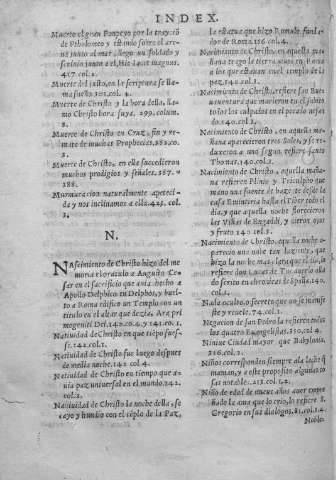 INDEX.
Muerto el gran Pompeyo por la trayciõ
de Ptholomeo y estando sobre el are
na junto al mar, llego un soldado y
417. col. 1.
Muerte del justo, en la scriptura se lla-
ma sueño. 101. col. 4.
Muerte de Christo y la hora della, lla-
mo Christo hora suya. 299. colum.
2.
Muerte de Christo en Cruz, fin y re-
mate de muchas Prophecias. 282. co.
3.
Muerte de Christo, en ella succedieron
muchos prodigios y señales. 287. y
288.
Murmuracion naturalmente apeteci-
da y nos inclinamos a ella. 425. col.
2.
N.
Nascimiento de Christo hizo del me
mora el oraculo a Augusto Ce-
sar en el sacrificio que avia hecho a
Apollo Delphico en Delphos, y buel-
to a Roma edifico un Templo con un
titulo en el altar que dezia, Ara pri
mogeniti Dei. 142. co. 4. y 141. co. 1.
Natividad de Christo en que tiépo fues-
se. 141. col. 1.
Natividad de Christo fue luego despues
de media noche. 141. col. 4.
Natividad de Christo en tiempo que a-
via paz universal en el mundo. 142.
col. 1.
Natividad de Christo la noche della, se
cayo y hundio con el téplo de la Paz,
la estatua que hizo Romulo fund a-
dor de Roma. 136. col. 4.
Nacimiento de Christo, en aquella ma
ñana
a los que estavan en el templo de la
paz. 140. col.
Nacimiento de Christo, refiere San Bue
naventura que murieron en el subito
todos los culpados en el pecado nefan
do. 140. col. 1.
Nacimiento de Christo, en aquella ma
ñana aparecieron tres Soles, y se re-
duxeron a uno segun refiere sancto
Thomas. 140. col.
Nacimiento de Christo, aquella maña
na refieren Plinio y Triculpio que
mano una fuente de azeyte desde la
casa Emeritera hasta el Tiber todo el
dia, y que aquella noche florecieron
las viñas de Engaddi, y dieron flor
y fruto 140 col. 3
Nacimiento de Christo, aquella noche a-
parecio una nube tan luziente, que
hizo la noche mas clara que el dia, lo
refiere don Lucas de Tuy
su senda en chronicas de España. 140.
col.
Nada oculto, o secreto que no se mani-
fieste y revele. 74. col. 1.
Negacion de san Pedro la refieren todos
los quatro Evangelistas. 210. col. 4.
Ninive Ciudad mayor que Babylonia.
216. col. 1.
Niños corresponden siempre ala leche q̃
maman, y a este proposito algunas co
sas notables. 213. col. 1. 2.
Niño de edad de nueve años
ñado le ama que lo crio, lo refiere S.
Gregorio en sus dialogos. 81. col. 1. 4.